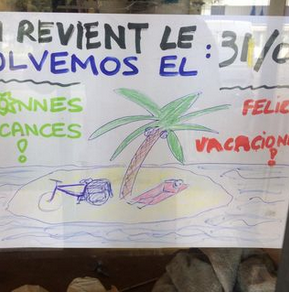 REVIENT LE
OLVEMOS EL : 31/0
ONNES
CANCES
!
FELIC
VACACION
!